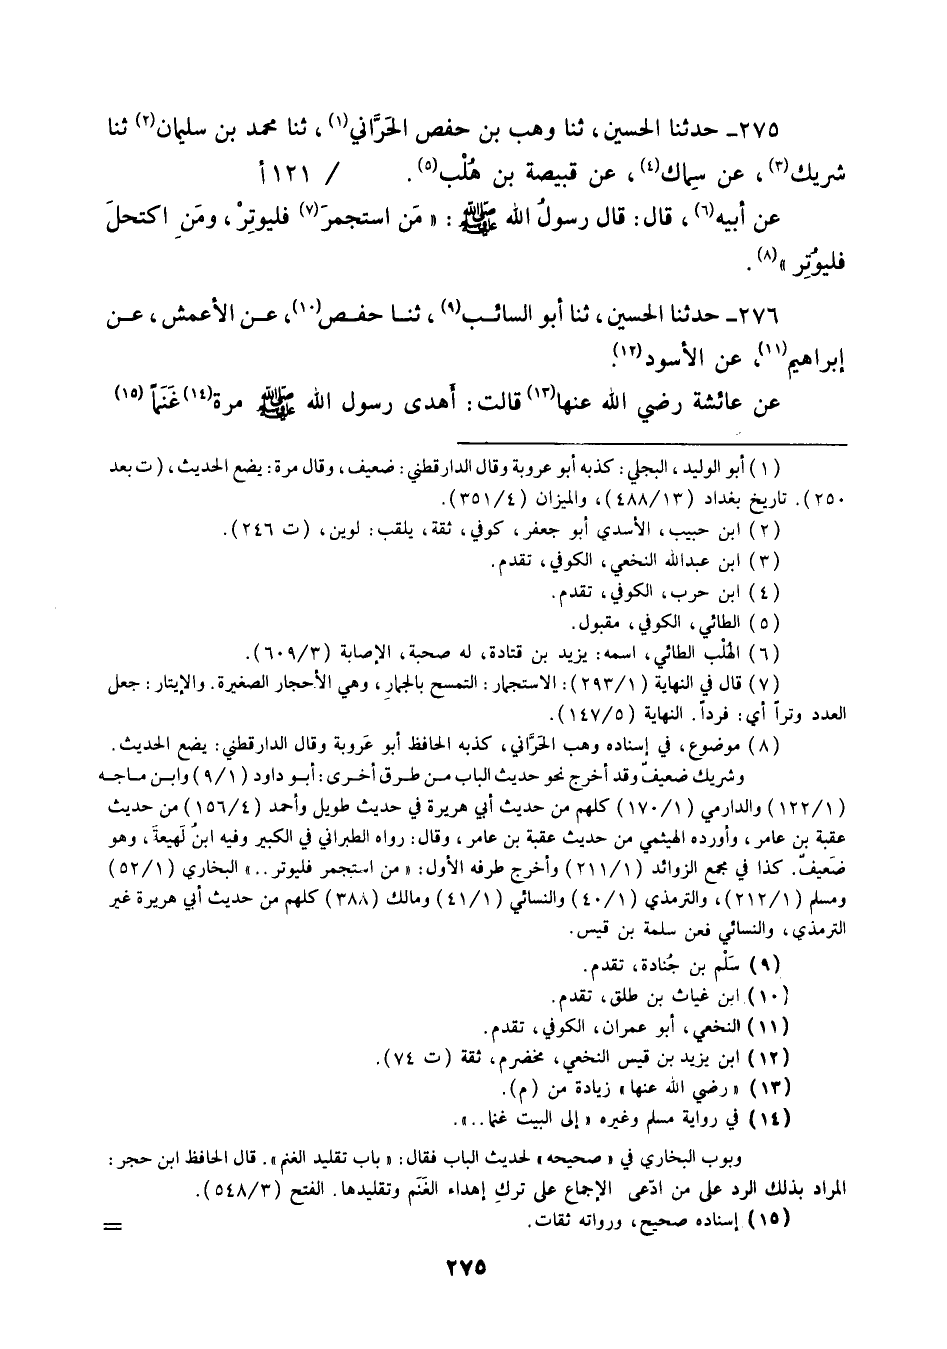 ٢٧٥ـ حدثنا الحسين، ثنا وهب بن حفص الحَرَّاني(١)، ثنا محمد بن سليمان(٢) ثنا
شريك(٣)، عن سِماك(٤)، عن قبيصة بن هُلْب(٥). / ١٢١ أ
عن أبيه(٦)، قال: قال رسولُ الله ﷺ: «مَن استجمرَ(٧) فليوتِرْ، ومَنِ اكتحلَ
فليوُتِر»(٨).
٢٧٦ـ حدثنا الحسين، ثنا أبو السائب(٩)، ثنا حفص(١٠)، عن الأعمش، عن
إبراهيم(١١)، عن الأسود(١٢).
عن عائشة رضي الله عنها(١٣) قالت: أَهدى رسول الله ﷺ مرة(١٤) غَنَماً(١٥)
(١) أبو الوليد، البجلي: كذبه أبو عروبة وقال الدارقطني: ضعيف، وقال مرة: يضع الحديث، (ت بعد
٢٥٠). تاريخ بغداد (٤٨٨/١٣)، والميزان (٣٥١/٤).
(٢) ابن حبيب، الأسدي أبو جعفر، كوفي، ثقة، يلقب: لوين، (ت ٢٤٦).
(٣) ابن عبدالله النخعي، الكوفي، تقدم.
(٤) ابن حرب، الكوفي، تقدم.
(٥) الطائي، الكوفي، مقبول.
(٦) الهُلْب الطائي، اسمه: يزيد بن قتادة، له صحبة، الإصابة (٦٠٩/٣).
(٧) قال في النهاية (٢٩٣/١): الاستجمار: التمسح بالجمار، وهي الأحجار الصغيرة. والإيتار: جعل
العدد وتراً أي: فرداً. النهاية (١٤٧/٥).
(٨) موضوع، في إسناده وهب الحَرَّاني، كذبه الحافظ أبو عَروبة وقال الدارقطني: يضع الحديث.
وشريك ضعيفٌ وقد أخرج نحو حديث الباب من طرق أخرى: أبو داود (٩/١) وابن ماجه
(١٢٢/١) والدارمي (١٧٠/١) كلهم من حديث أبي هريرة في حديث طويل وأحمد (١٥٦/٤) من حديث
عقبة بن عامر، وأورده الهيثمي من حديث عقبة بن عامر، وقال: رواه الطبراني في الكبير وفيه ابنُ لَهيعة، وهو
ضَعيفٌ. كذا في مجمع الزوائد (٢١١/١) وأخرج طرفه الأول: «من استجمر فليوتر..» البخاري (٥٢/١)
ومسلم (٢١٢/١)، والترمذي (٤٠/١) والنسائي (٤١/١) ومالك (٣٨٨) كلهم من حديث أبي هريرة غير
الترمذي، والنسائي فعن سلمة بن قيس.
(٩) سَلْم بن جُنادة، تقدم.
(١٠) ابن غياث بن طلق، تقدم.
(١١) النخعي، أبو عمران، الكوفي، تقدم.
(١٢) ابن يزيد بن قيس النخعي، مخضرم، ثقة (ت ٧٤).
(١٣) «رضي الله عنها» زيادة من (م).
(١٤) في رواية مسلم وغيره «إلى البيت غنما..».
وبوب البخاري في «صحيحه» لحديث الباب فقال: «باب تقليد الغنم». قال الحافظ ابن حجر:
المراد بذلك الرد على من ادّعى الإجماع على تركِ إهداء الغَنَم وتقليدها. الفتح (٥٤٨/٣).
(١٥) إسناده صحيح، ورواته ثقات. =
٢٧٥